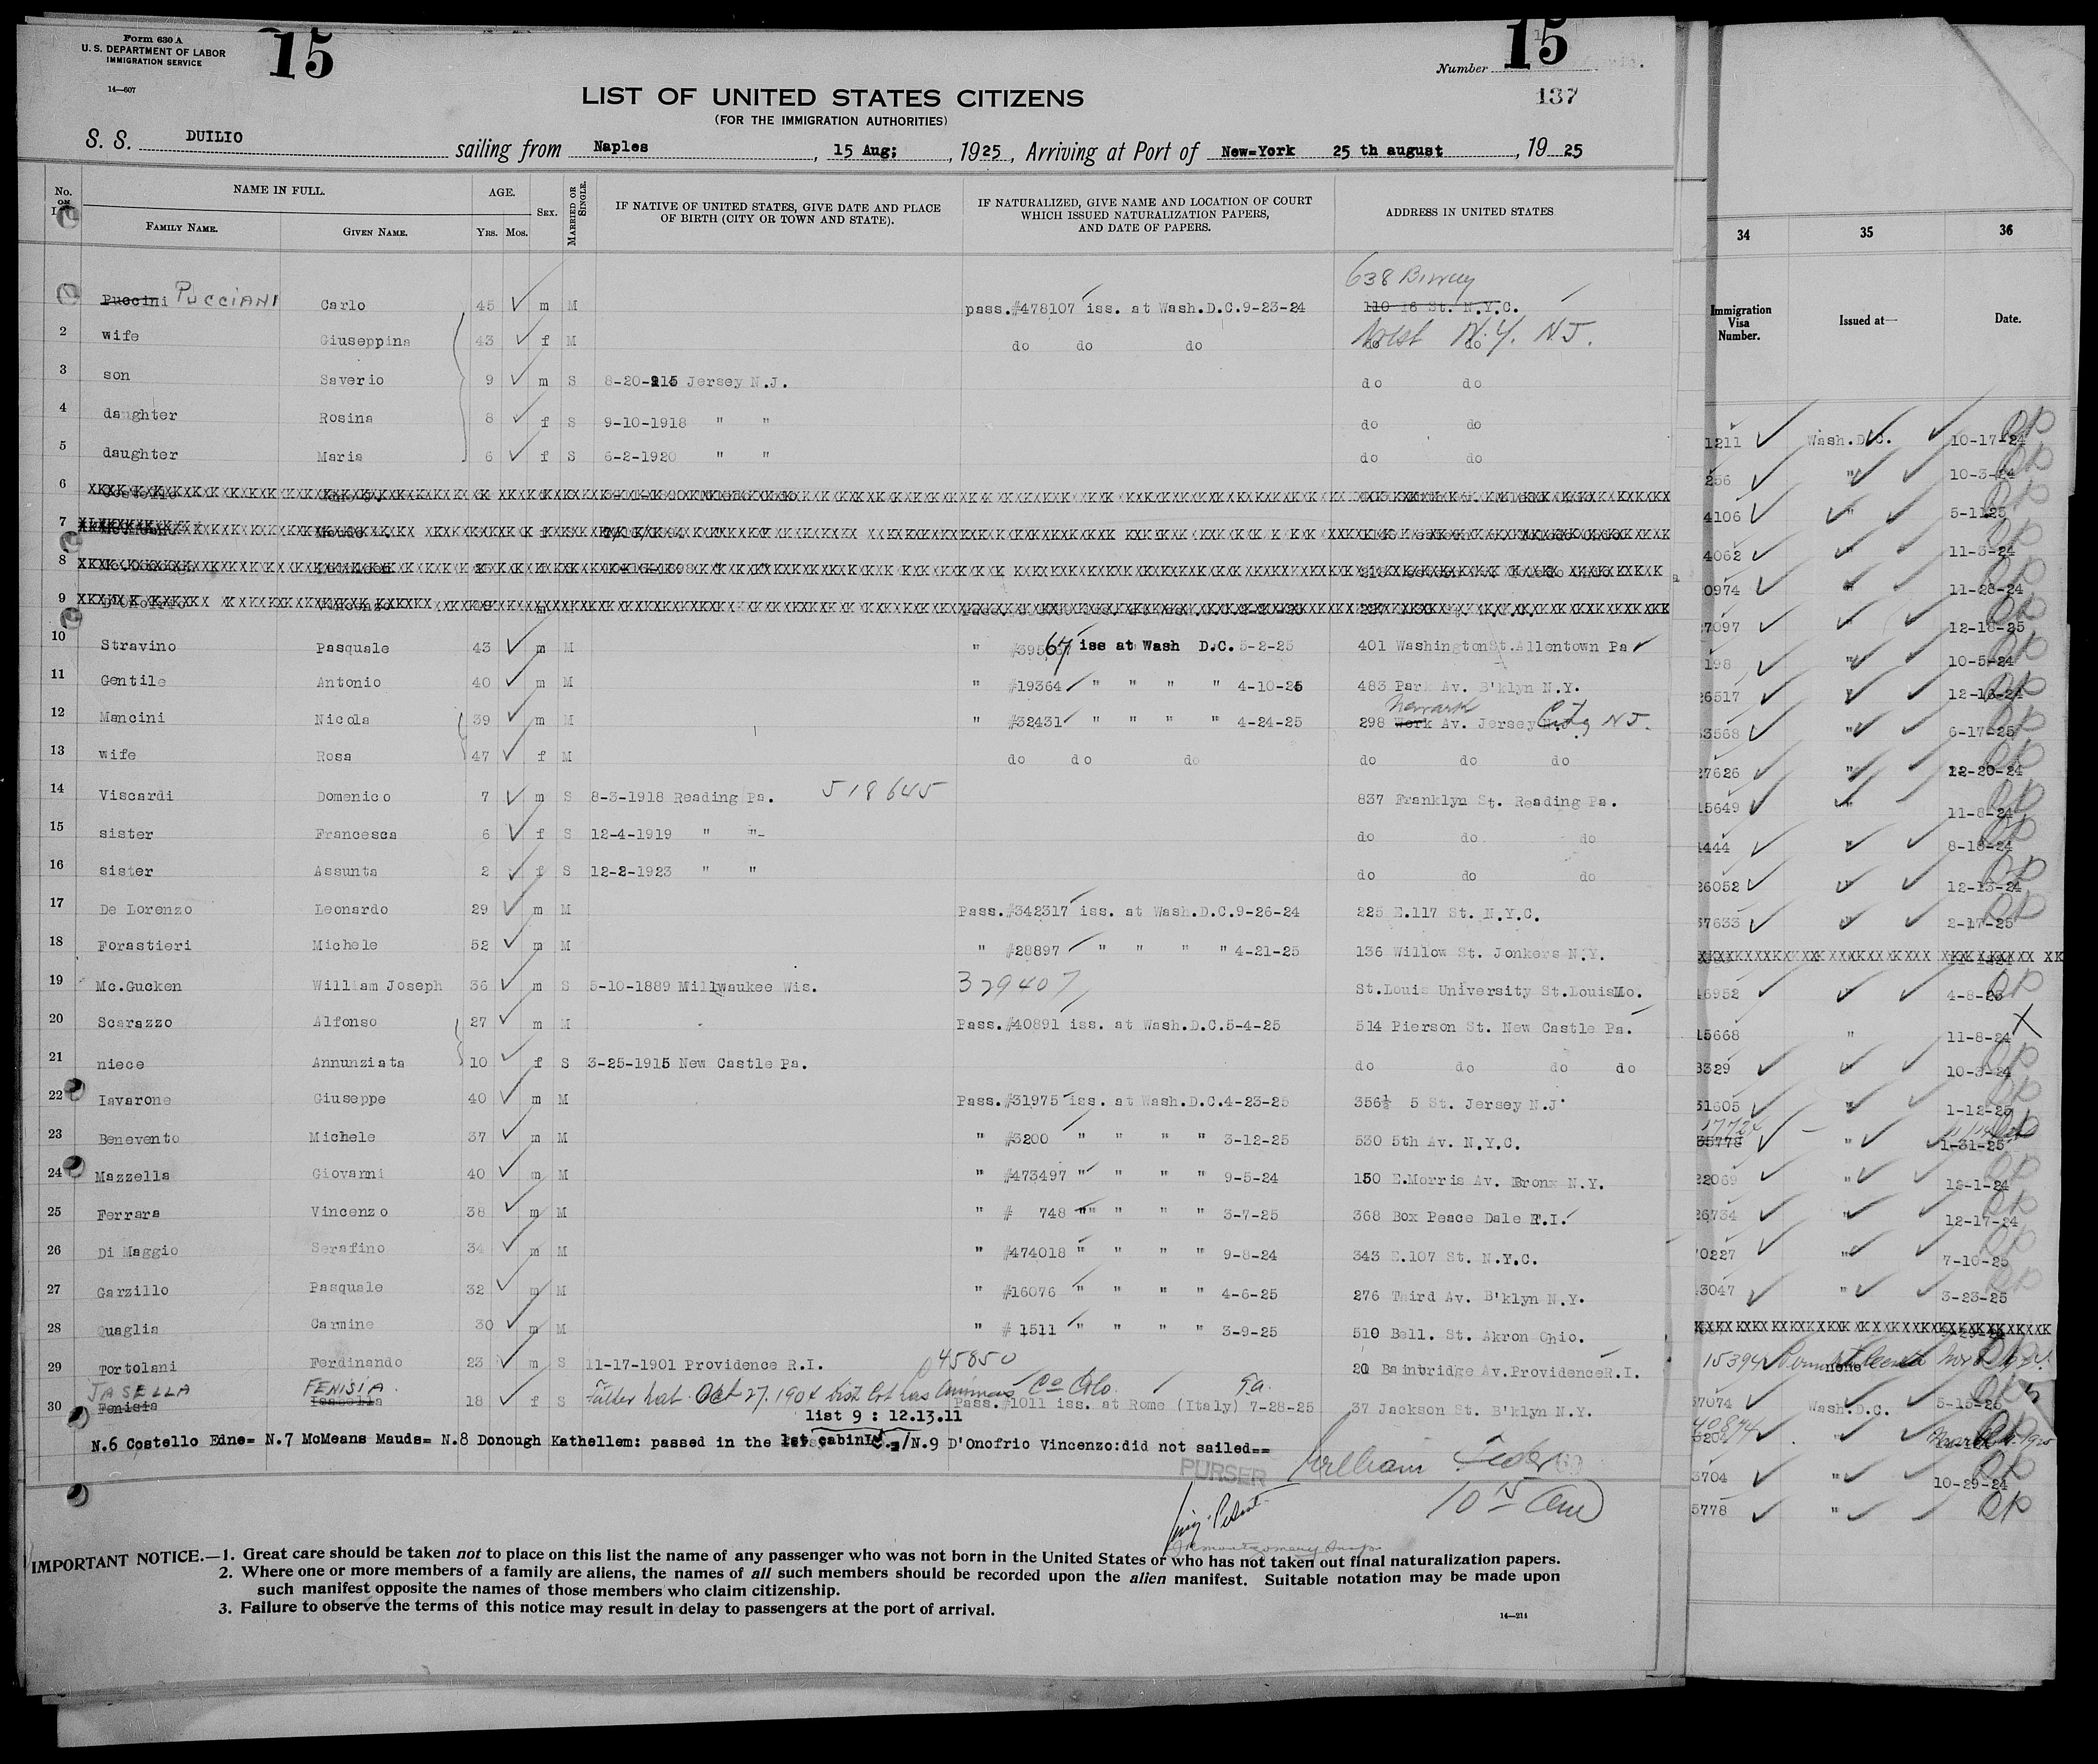 Form 630 A
U. S. DEPARTMENT OF LABOR
IMMIGRATION SERVICE
14—607
15
Number 15
137
LIST OF UNITED STATES CITIZENS
(FOR THE IMMIGRATION AUTHORITIES)
S. S. DUILIO sailing from Naples, 15 Aug; , 1925, Arriving at Port of New=York 25 th august, 19 25
No. ON NAME IN FULL. AGE. SEX. MARRIED OR SINGLE. IF NATIVE OF UNITED STATES, GIVE DATE AND PLACE OF BIRTH (CITY OR TOWN AND STATE). IF NATURALIZED, GIVE NAME AND LOCATION OF COURT WHICH ISSUED NATURALIZATION PAPERS, AND DATE OF PAPERS. ADDRESS IN UNITED STATES
FAMILY NAME. GIVEN NAME. YRS. MOS.
638
Puccini PUCCIANI Carlo 45 m M pass.#478107 iss. at Wash.D.C.9-23-24 110 16 St. N.Y.C.
2 wife Giuseppina 43 f M do do do do do West N.Y. N.J.
3 son Saverio 9 m S 8-20-915 Jersey N.J. do do
4 daughter Rosina 8 f S 9-10-1918 " " do do
5 daughter Maria 6 f S 6-2-1920 " " do do
6
7
8
9
10 Stravino Pasquale 43 m M " #39564 iss at Wash D.C. 5-2-25 401 Washington St. Allentown Pa
11 Gentile Antonio 40 m M " #19364 " " " " 4-10-25 483 Park Av. B'klyn N.Y.
Newark
12 Mancini Nicola 39 m M " #32431 " " " " 4-24-25 298 Work Av. Jersey City N.J.
13 wife Rosa 47 f M do do do do do do
14 Viscardi Domenico 7 m S 8-3-1918 Reading Pa. 518645 837 Franklyn St. Reading Pa.
15 sister Francesca 6 f S 12-4-1919 " "- do do do
16 sister Assunta 2 f S 12-2-1923 " " do do do
17 De Lorenzo Leonardo 29 m M Pass.#342317 iss. at Wash.D.C.9-26-24 225 E.117 St. N.Y.C.
18 Forastieri Michele 52 m M " #28897 " " " " 4-21-25 136 Willow St. Jonkers N.Y.
19 Mc.Gucken William Joseph 36 m S 5-10-1889 Millwaukee Wis. 329407 St.Louis University St.LouisMo.
20 Scarazzo Alfonso 27 m M Pass.#40891 iss. at Wash.D.C.5-4-25 514 Pierson St. New Castle Pa.
21 niece Annunziata 10 f S 3-25-1915 New Castle Pa. do do do do
22 Iavarone Giuseppe 40 m M Pass.#31975 iss. at Wash.D.C.4-23-25 356½ 5 St. Jersey N.J
23 Benevento Michele 37 m M " #3200 " " " " 3-12-25 530 5th Av. N.Y.C.
24 Mazzella Giovanni 40 m M " #473497 " " " " 9-5-24 150 E.Morris Av. Bronx N.Y.
25 Ferrara Vincenzo 38 m M " # 748 "" " " " 3-7-25 368 Box Peace Dale R.I.
26 Di Maggio Serafino 34 m M " #474018 " " " " 9-8-24 343 E.107 St. N.Y.C.
27 Garzillo Pasquale 32 m M " #16076 " " " " 4-6-25 276 Third Av. B'klyn N.Y.
28 Quaglia Carmine 30 m M " # 1511 " " " " 3-9-25 510 Bell. St. Akron Ohio.
29 Tortolani Ferdinando 23 m S 11-17-1901 Providence R.I. 45850 20 Bainbridge Av.ProvidenceR.I.
JASELLA FENISIA. Father nat. Oct 27. 1904 Dist Crt Las Animas Co Colo.
30 Fenisia 18 f S Pass.#1011 iss. at Rome (Italy) 7-28-25 37 Jackson St. B'klyn N.Y.
list 9 : 12.13.11
N.6 Costello Edne= N.7 McMeans Mauds= N.8 Donough Kathellem: passed in the 1st cabin N.9 D'Onofrio Vincenzo:did not sailed==
PURSER
William
IMPORTANT NOTICE.—1. Great care should be taken not to place on this list the name of any passenger who was not born in the United States or who has not taken out final naturalization papers.
2. Where one or more members of a family are aliens, the names of all such members should be recorded upon the alien manifest. Suitable notation may be made upon
such manifest opposite the names of those members who claim citizenship.
3. Failure to observe the terms of this notice may result in delay to passengers at the port of arrival.
14—214
34 35 36
Immigration Visa Number. Issued at— Date.
1211 Wash.D.C. 10-17-24
256 " 10-3-24
4106 " 5-1125
4062 " 11-3-24
0974 " 11-28-24
7097 " 12-18-25
198 " 10-5-24
26517 " 12-13-24
53568 " 6-17-25
27626 " 12-20-24
15649 " 11-8-24
4444 " 8-18-24
26052 " 12-13-24
37633 " 2-17-25
16952 " 4-8-25
15668 " 11-8-24
3329 " 10-3-24
31605 " 1-12-25
35778 " 1-31-25
22069 " 12-1-24
26734 " 12-17-24
70227 " 7-10-25
43047 " 3-23-25
15394 none
57074 Wash.D.C. 5-15-25
40874
3704 " 10-29-24
5778 "